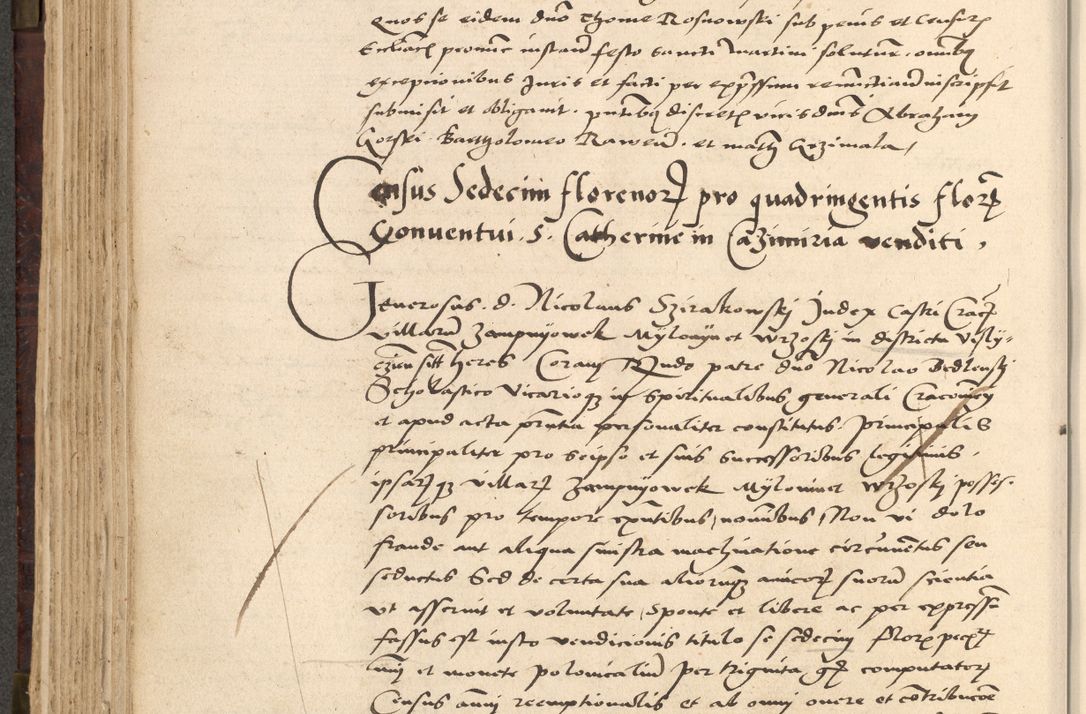 quos se eidem dno Thome Rosnowski sub penis et censuris
Ecclesiasticis pronunc instanti festo sancti Martini soluturum. omnibus
exceptionibus Juris et facti per expressum renuncciando inscripsit
submisit et obligavit. presentibus discretis viris dnis Abraham
Gorski Bartholomeo et math Grzimala /
Census Sedecim florenorum pro quadringentis florenis
Conventui. S. Catherine in Cazimiria venditi ,
Generosus. d. Nicolaus Szirakowskj Judex Castri Crac
villarum Zempnyowek Mylonyn et Wrzosky in districtu Visly-
czien heres Coram Rndo patre dno Nicolao Bedlensky
Scholastico Vicarioque in spiritualibus generali Cracovien
et apud acta presentia personaliter constitutus Principalis
principaliter pro seipso et suis successoribus legitimis .
ipsarumque villarum Zempnyowek Mylonin et Wrzosky posses-
soribus pro tempore existentibus, Non vi dolo
fraude aut aliqua sinistra machinatione circumventus seu
seductus Sed de certa sua aliorumque amicorum suorum scientia
ut asseruit et voluntate, Sponte et libere ac per expressum
fassus est iusto vendicionis titulo se sedecim florenos
et monete polonicalium per triginta gr computatorum
Census annui reemptionalis et ab omni onere et contribucione